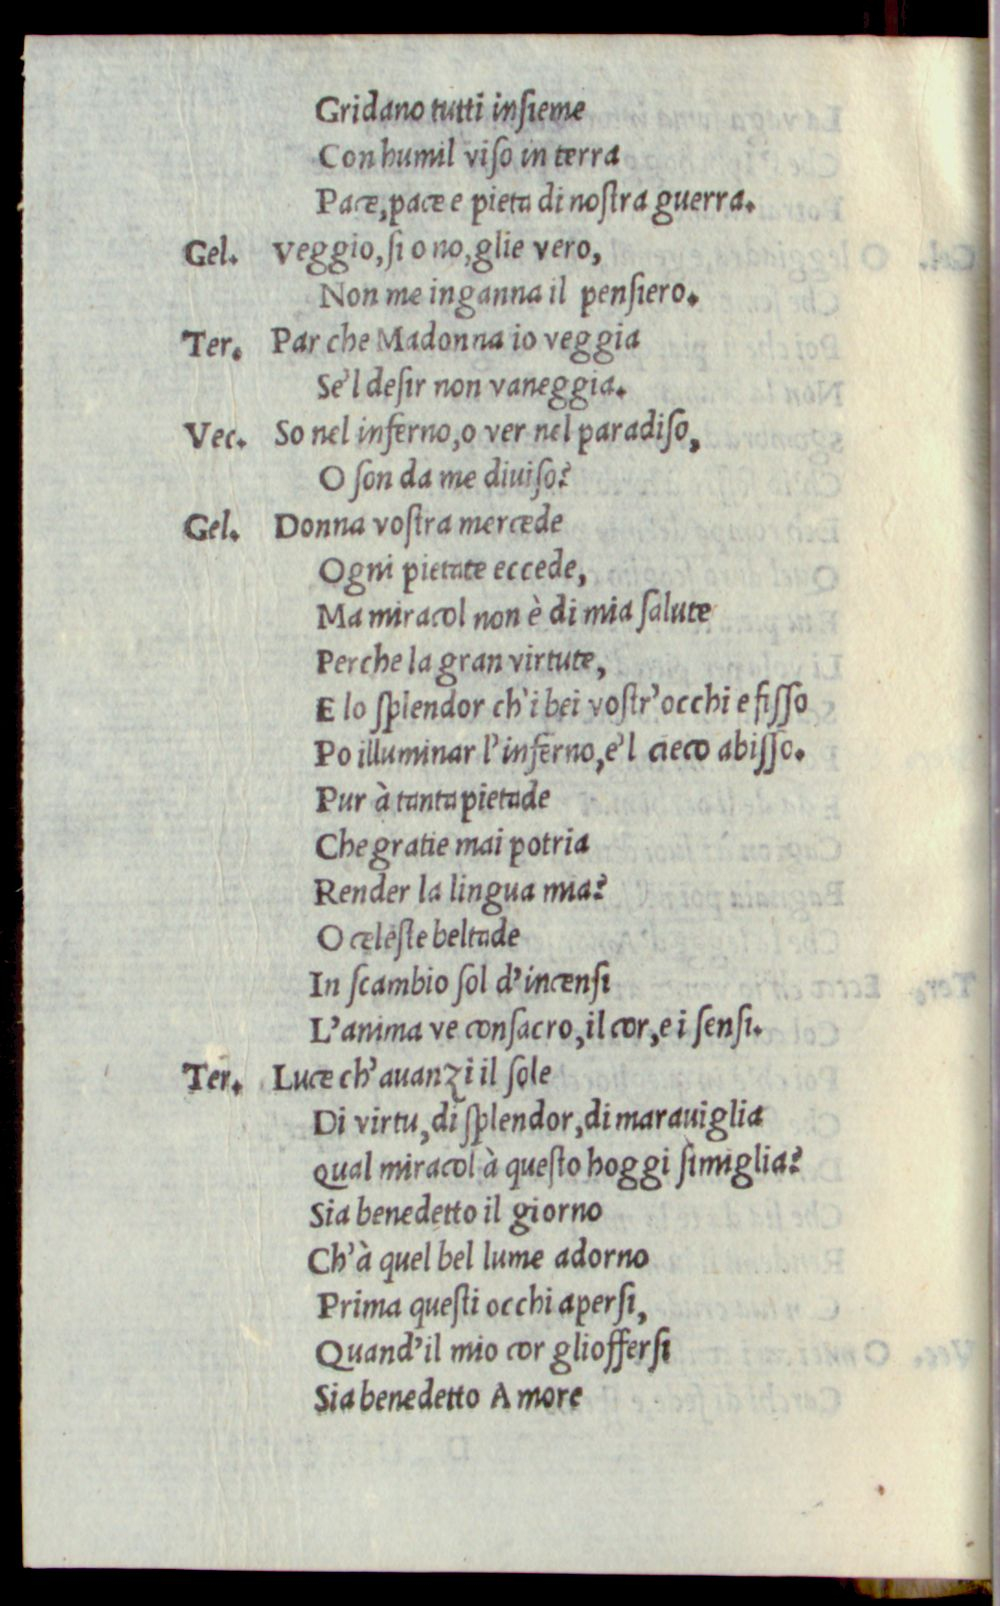 Gridano tutti inſieme
Con humil viſo in terra
Pace, pace e pieta di noſtra guerra.
Gel. Veggio, ſi o no, glie vero,
Non me inganna il penſiero.
Ter. Par che Madonna io veggia
Se'l deſir non vaneggia.
Vec. So nel inferno, o ver nel paradiſo,
O ſon da me diuiſo?
Gel. Donna voſtra mercede
Ogni pietate eccede,
Ma miracol non è di mia ſalute
Perche la gran virtute,
E lo ſplendor ch'i bei voſtr'occhi e fiſſo
Po illuminar l'inferno, e'l cieco abiſſo.
Pur à tanta pietade
Che gratie mai potria
Render la lingua mia?
O celeſte beltade
In ſcambio ſol d'incenſi
L'anima ve conſacro, il cor, e i ſenſi.
Ter. Luce ch'auanzi il ſole
Di virtu, di ſplendor, di marauiglia
Qual miracol à queſto hoggi ſimiglia?
Sia benedetto il giorno
Ch'à quel bel lume adorno
Prima queſti occhi aperſi,
Quand'il mio cor glioſferſi
Sia benedetto Amore